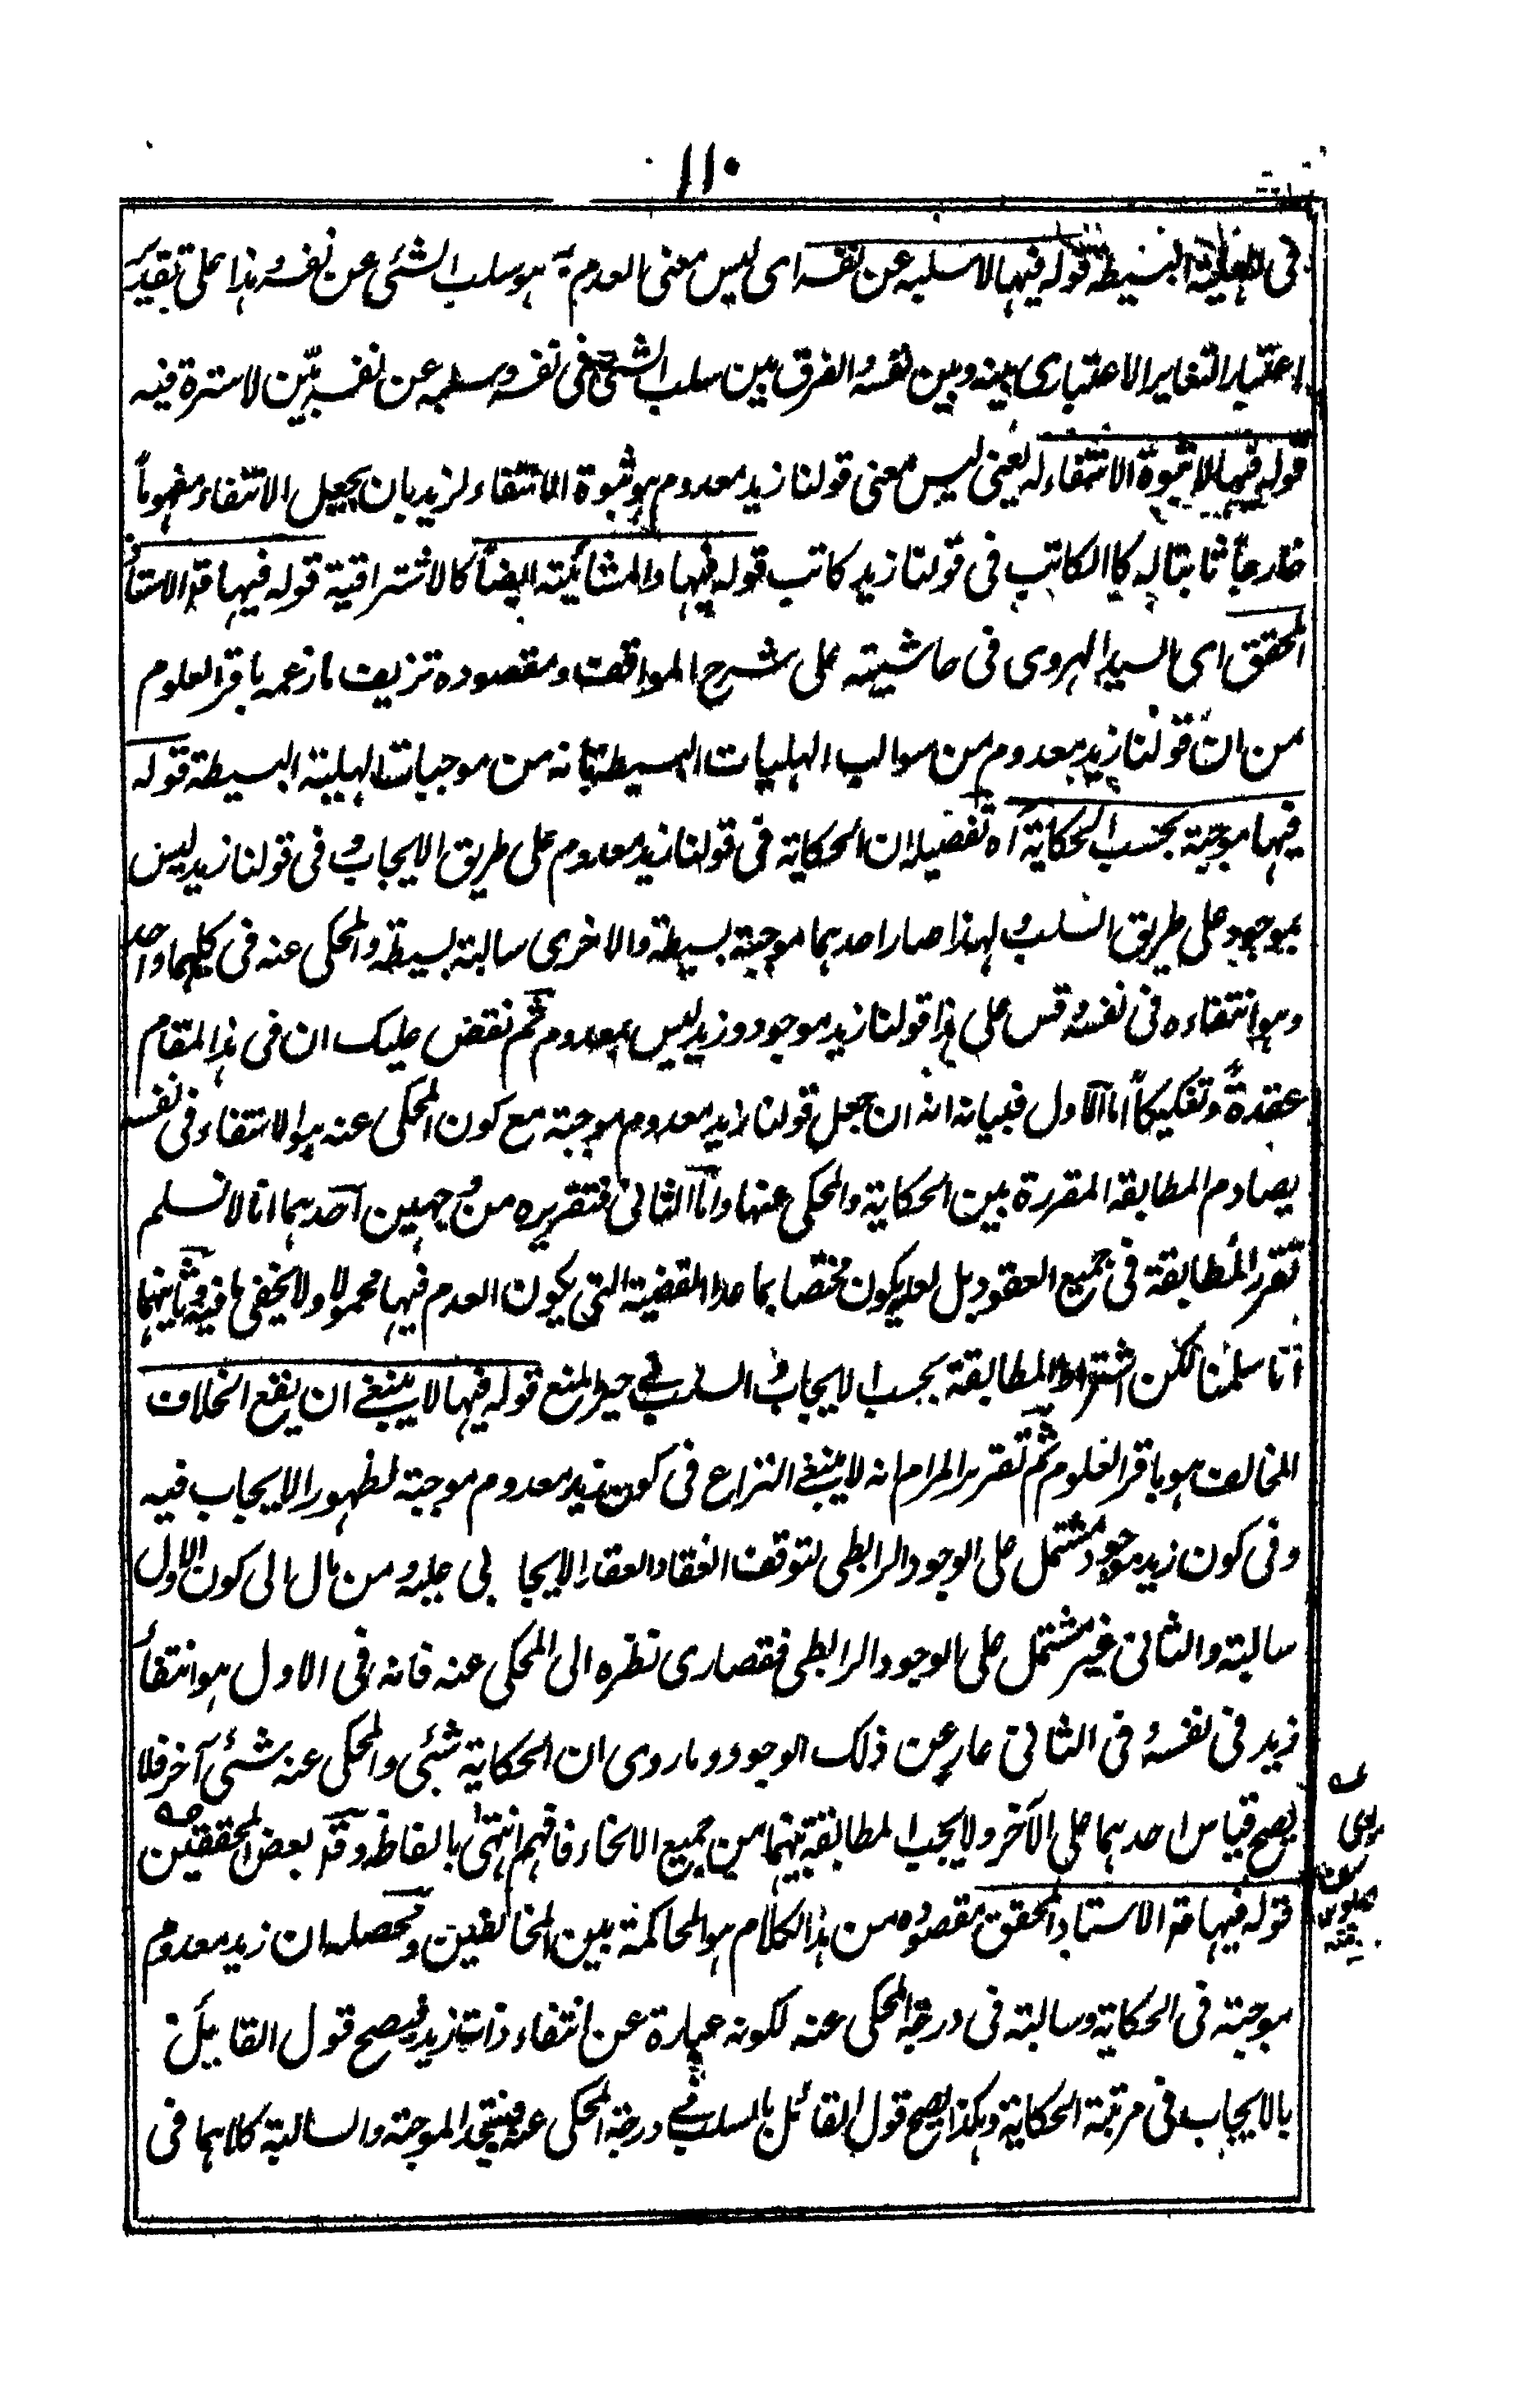 ١١٠
فى الهلية البسيطة قوله فيها لا سلبه عن نفسه اى ليس معنى العدم هو سلب الشئى عن نفسه و هذا على تقدير
اعتبار التغاير الاعتبارى بينه وبين نفسه و الفرق بين سلب الشئى فى نفسه و سلبه عن نفسه بيّن لا سترة فيه
قوله فيها لا ثبوة الانتفاء له يعنى ليس معنى قولنا زيد معدوم هو ثبوة الانتفاء لزيد بان يجعل الانتفاء مفهوماً
خارجاً ثابتا له كالكاتب فى قولنا زيد كاتب قوله فيها والمشائية ايضاً كالاشراقية قوله فيها قد الاستاذ
المحقق اى السيد الهروى فى حاشيته على شرح المواقف ومقصوده تزييف ما زعمه باقر العلوم
من ان قولنا زيد معدوم من سوالب الهليات البسيطة بانه من موجبات الهلية البسيطة قوله
فيها موجبة بحسب الحكاية آه تفصيله ان الحكاية فى قولنا زيد معدوم على طريق الايجاب و فى قولنا زيد ليس
بموجود على طريق السلب و لهذا صار احدهما موجبة بسيطة والاخرى سالبة بسيطة والمحكى عنه فى كليهما واحد
وهو انتفاءه فى نفسه و قس على هذا قولنا زيد موجود و زيد ليس بمعدوم ثم نقض عليك ان فى هذا المقام
عقدةً و تفكيكاً اما الاول فبيانه انه ان جعل قولنا زيد معدوم موجبة مع كون المحكى عنه هو الانتفاء فى نفسه
يصادم المطابقة المقررة بين الحكاية والمحكى عنها واما الثانى فتقريره من وجهين احدهما انا لا نسلم
تقرر المطابقة فى جميع العقود بل لعله يكون مختصا بما عدا القضية التى يكون العدم فيها محمولا ولا يخفى ما فيه وثانيهما
انا سلمنا لكن اشتراط المطابقة بحسب الايجاب و السلب فى حيز المنع قوله فيها لا ينبغى ان يقع الخلاف
المخالف هو باقر العلوم ثم تقرير المرام انه لا ينبغى النزاع فى كون زيد معدوم موجبة لظهور الايجاب فيه
وفى كون زيد موجود مشتمل على الوجود الرابطى لتوقف انعقاد العقد الايجابى عليه و من مال الى كون الاول
سالبة والثانى غير مشتمل على الوجود الرابطى فقصارى نظره الى المحكى عنه فانه فى الاول هو انتفاء
زيد فى نفسه و فى الثانى عار عن ذلك الوجود وما روى ان الحكاية شئى والمحكى عنه شئى آخر فلا
يصح قياس احدهما على الآخر ولا يجب المطابقة بينهما من جميع الانحاء فافهم انتهى بالفاظه وقد بعض المحققين
قوله فيها قد الاستاد المحقق مقصوده من هذا الكلام هو المحاكمة بين المخالفين ومحصله ان زيد معدوم
موجبة فى الحكاية وسالبة فى درجة المحكى عنه لكونه عبارة عن انتفاء ذات زيد فيصح قول القائل
بالايجاب فى مرتبة الحكاية وهكذا يصح قول القائل بالسلب فى درجة المحكى عنه فيتحد الموجبة والسالبة كلاهما فى